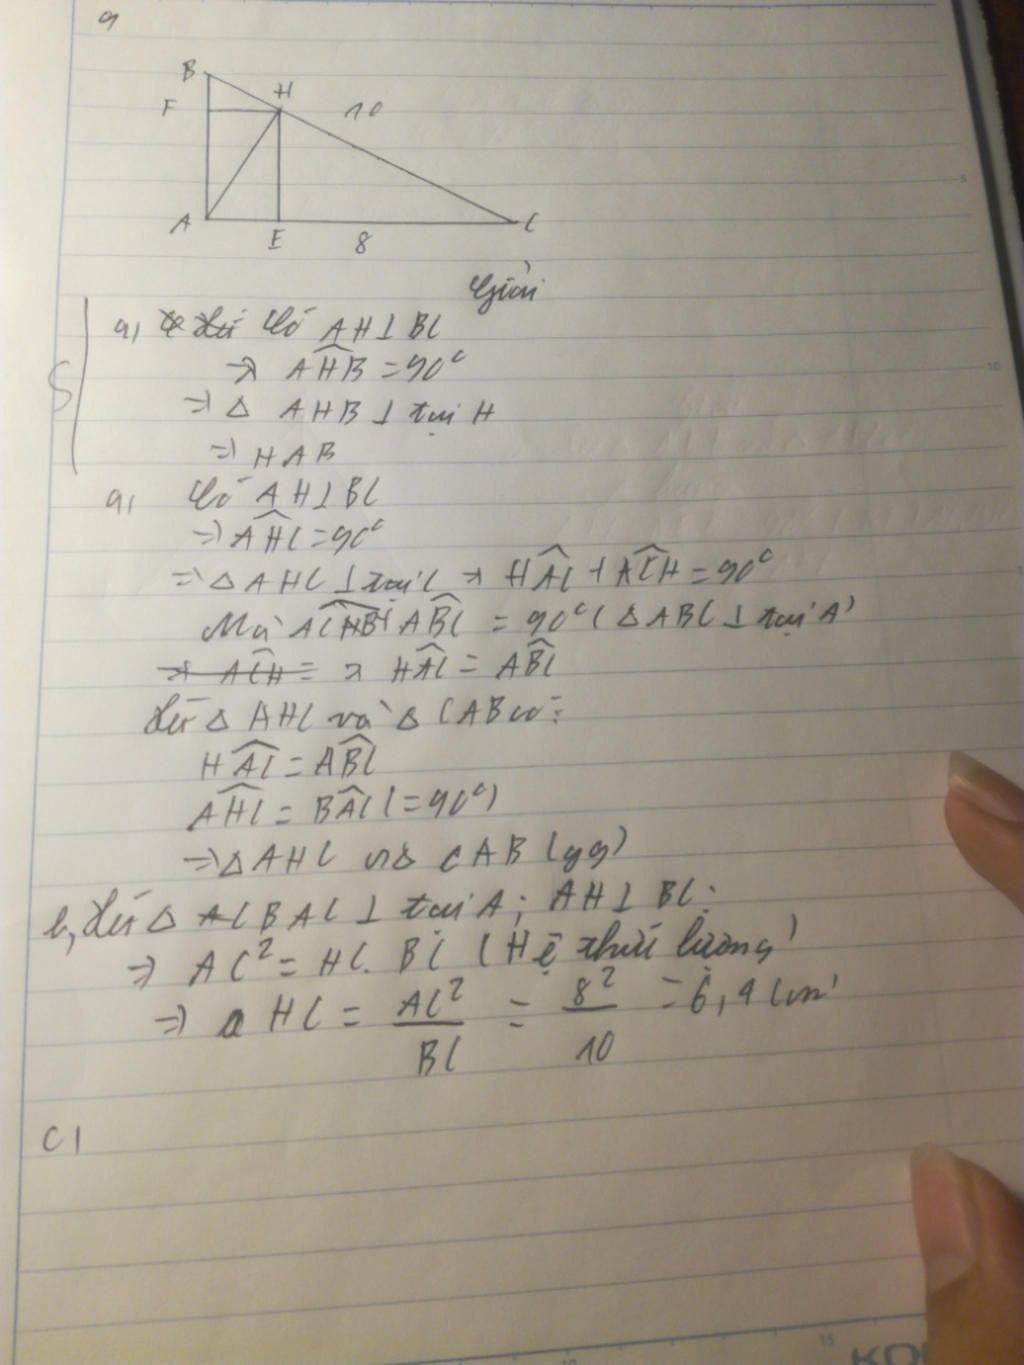 9
B
H
F
10
A
E
8
C
Giải
a, Có AH⊥BC
→ AHB = 90°
S
⇒ Δ AHB ⊥ tại H
⇒ HAB
a, Có AH⊥BC
⇒ AHC = 90°
⇒ Δ AHC ⊥ tại C → HAC + ACH = 90°
Mà ABC = 90° (Δ ABC ⊥ tại A)
→ ACH = → HAC = ABC
Xét Δ AHC và Δ CAB có:
HAC = ABC
AHC = BAC (= 90°)
⇒ Δ AHC ∽ Δ CAB (gg)
b, Xét Δ BAC ⊥ tại A; AH⊥BC:
⇒ AC² = HC. BC (Hệ thức lượng)
⇒ HC = AC² / BC = 8² / 10 = 6,4 (cm)
c,
10
5
10
15